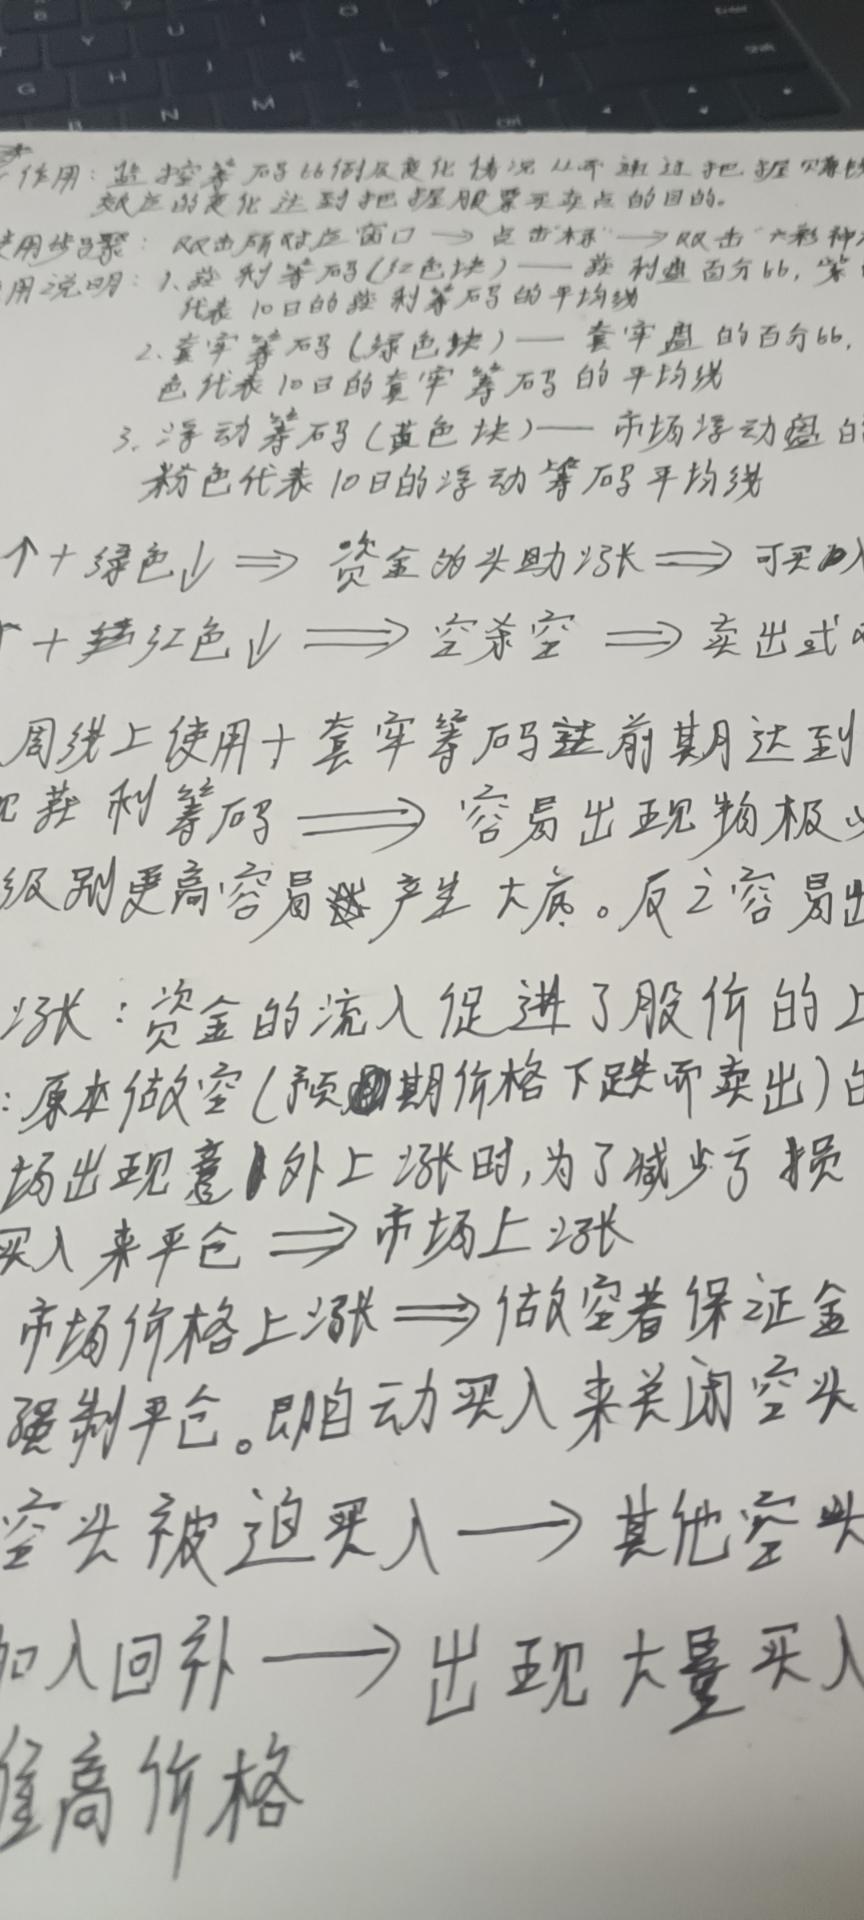 作用：监控筹码比例及变化情况从而通过把握赚钱
效应的变化达到把握股票买卖点的目的。
使用步骤：双击所对应窗口→点击"标"→双击"六彩神
用说明：1.获利筹码(红色块)——获利盘百分比，紫
代表10日的获利筹码的平均线
2.套牢筹码(绿色块)——套牢盘的百分比，
色代表10日的套牢筹码的平均线
3.浮动筹码(黄色块)——市场浮动盘的
粉色代表10日的浮动筹码平均线
↑+绿色↓⇒资金的头助涨⇒可买入
↑+红色↓⇒空杀空⇒卖出或
周线上使用+套牢筹码前期达到
现获利筹码⇒容易出现物极必
级别更高容易产生大底。反之容易出
涨：资金的流入促进了股价的上
：原本做空(预期价格下跌而卖出)的
场出现意外上涨时,为了减少亏损
买入来平仓⇒市场上涨
市场价格上涨⇒做空者保证金
强制平仓。即自动买入来关闭空头
空头被迫买入→其他空头
加入回补→出现大量买入
推高价格